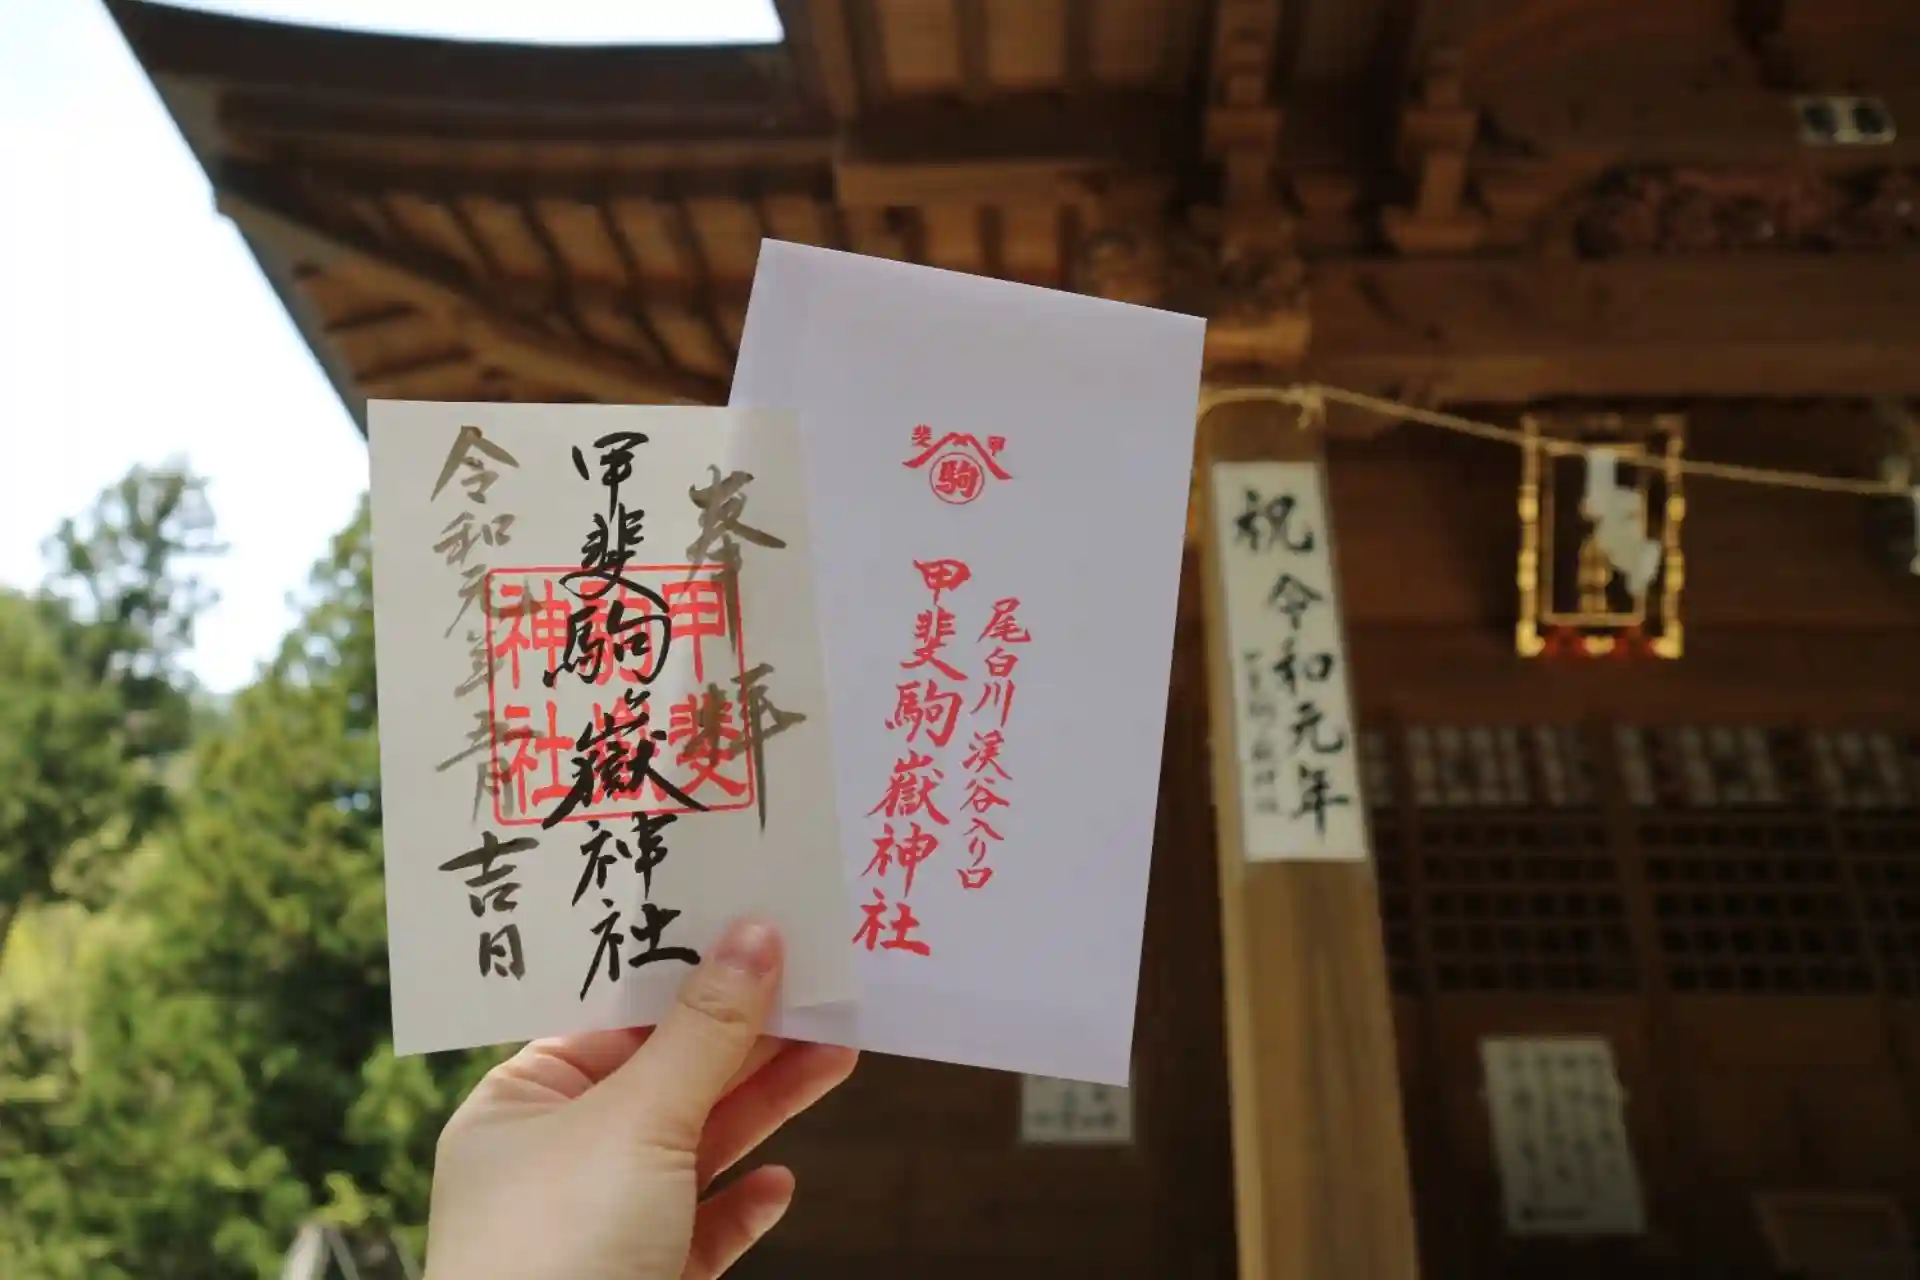 奉拝
甲斐駒嶽神社
令和元年五月
吉日
甲斐
駒嶽
神社
甲斐
駒
尾白川渓谷入り口
甲斐駒嶽神社
祝令和元年